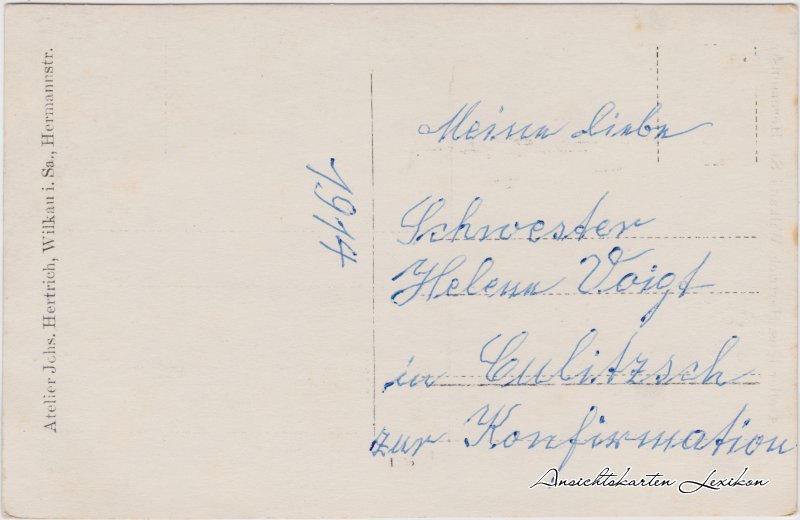 Atelier Johs. Hertrich, Wilkau i. Sa., Hermannstr.
1914
Meine Liebe
Schwester
Helene Voigt
in Culitzsch
zur Konfirmation
Ansichtskarten Lexikon